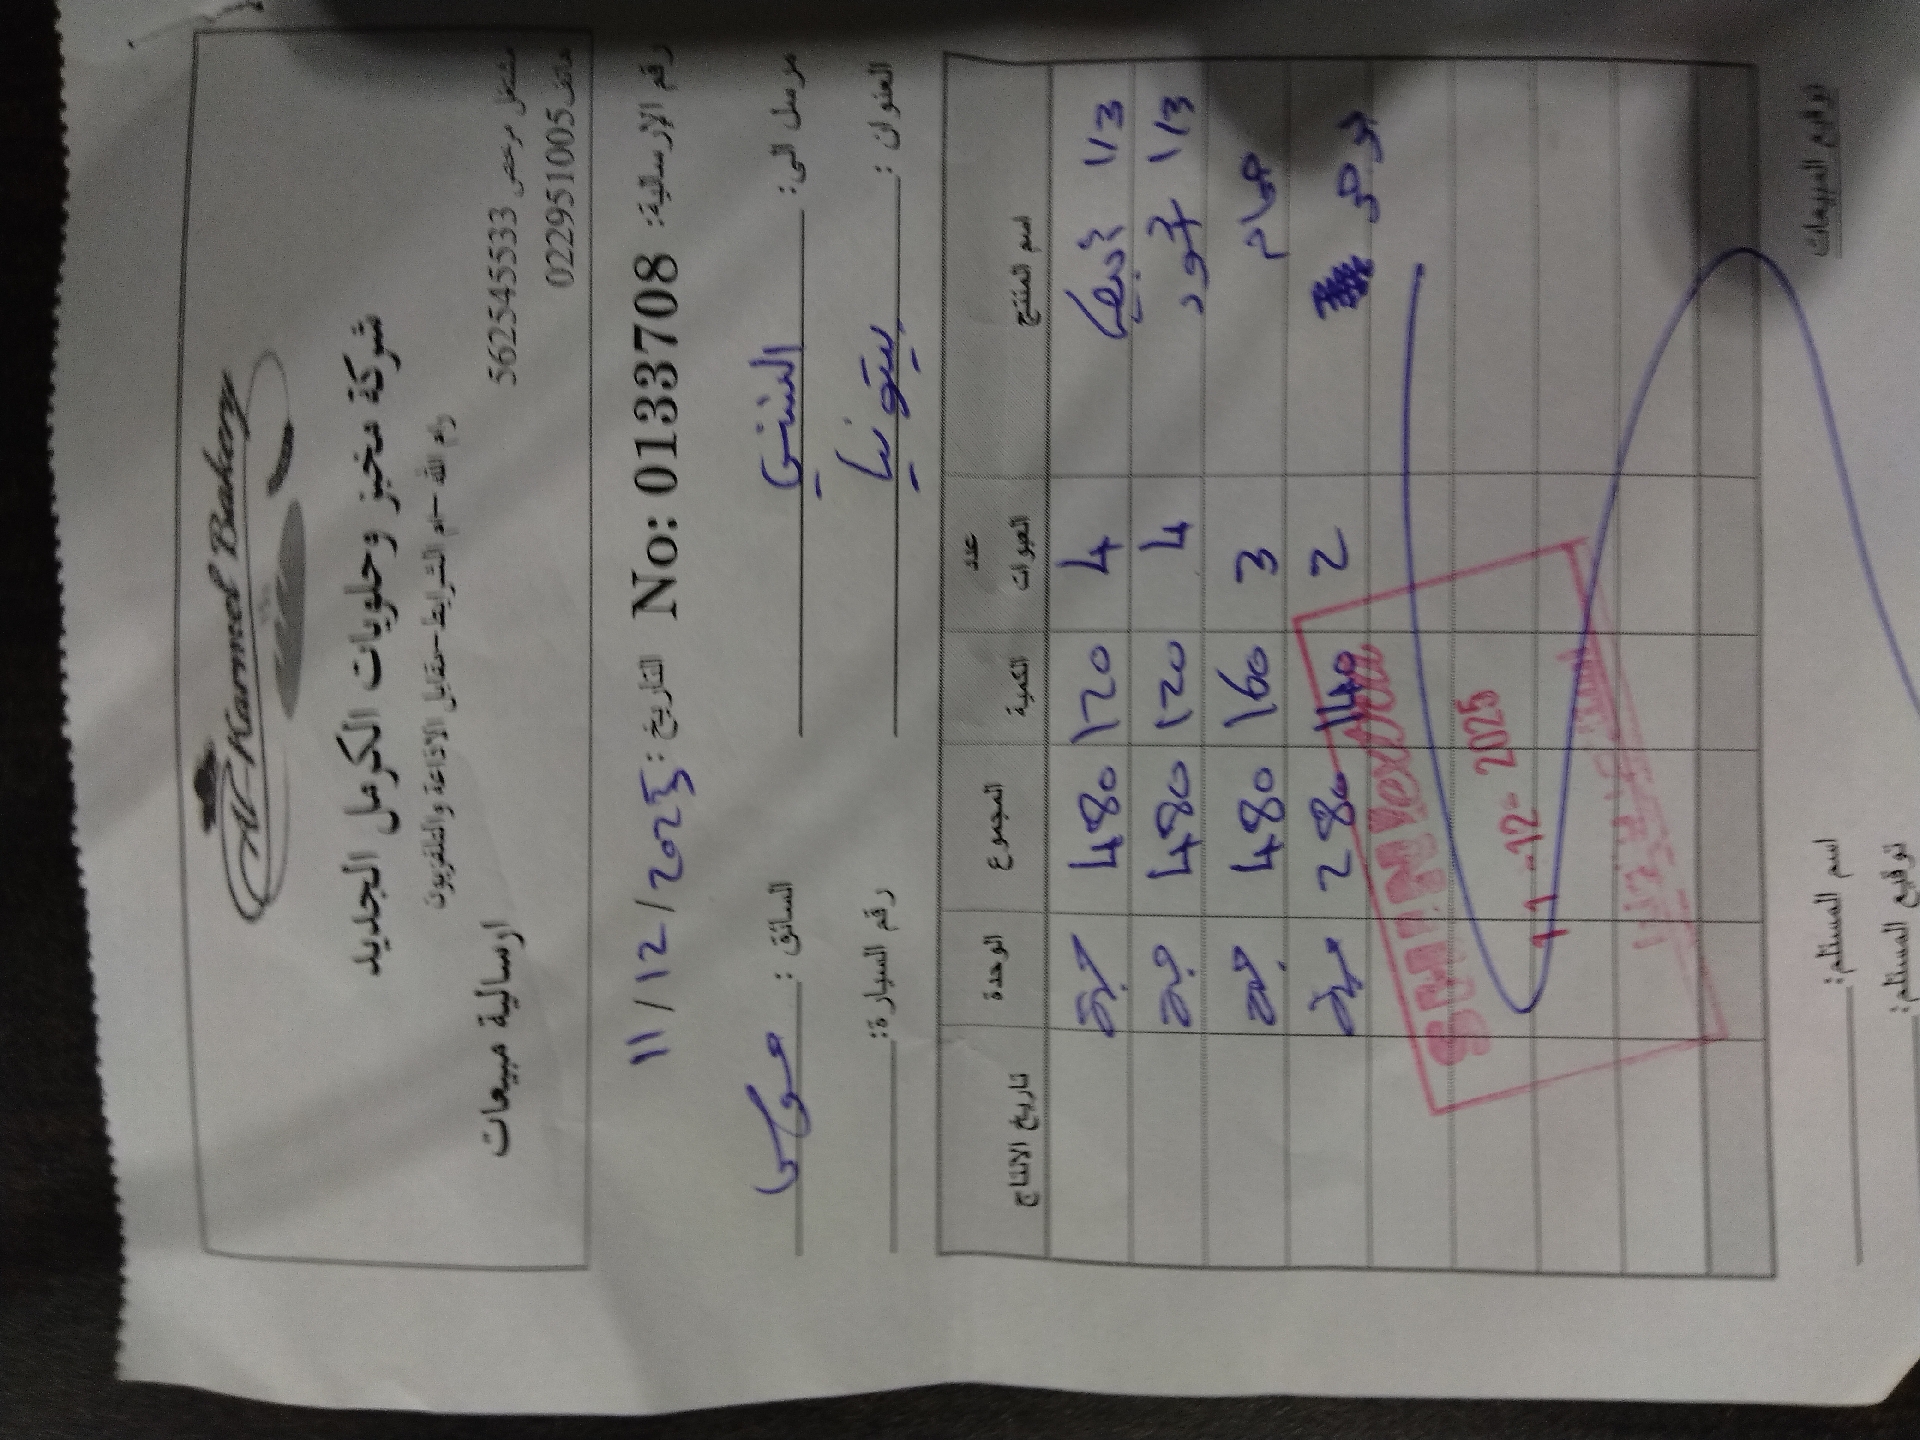 Al-Karmel Bakery
شركة مخبز وحلويات الكرمل الجديد
رام الله -ام الشرايط-مقابل الاذاعة والتلفزيون
مشتغل مرخص 562545533
هاتف 022951005
ارسالية مبيعات
رقم الإرسالية: No: 0133708 التاريخ: 11/12/2025
مرسل الى: السني السائق: موسى
العنوان: بيتونيا رقم السيارة:
اسم المنتج عدد العبوات الكمية المجموع الوحدة تاريخ الانتاج
1/3 4 120 480 حبة
1/3 4 120 480 حبة
حمام 3 160 480 حبة
2 140 280 حبة
SHINI
11 -12- 2025
توقيع المبيعات
اسم المستلم:
توقيع المستلم: